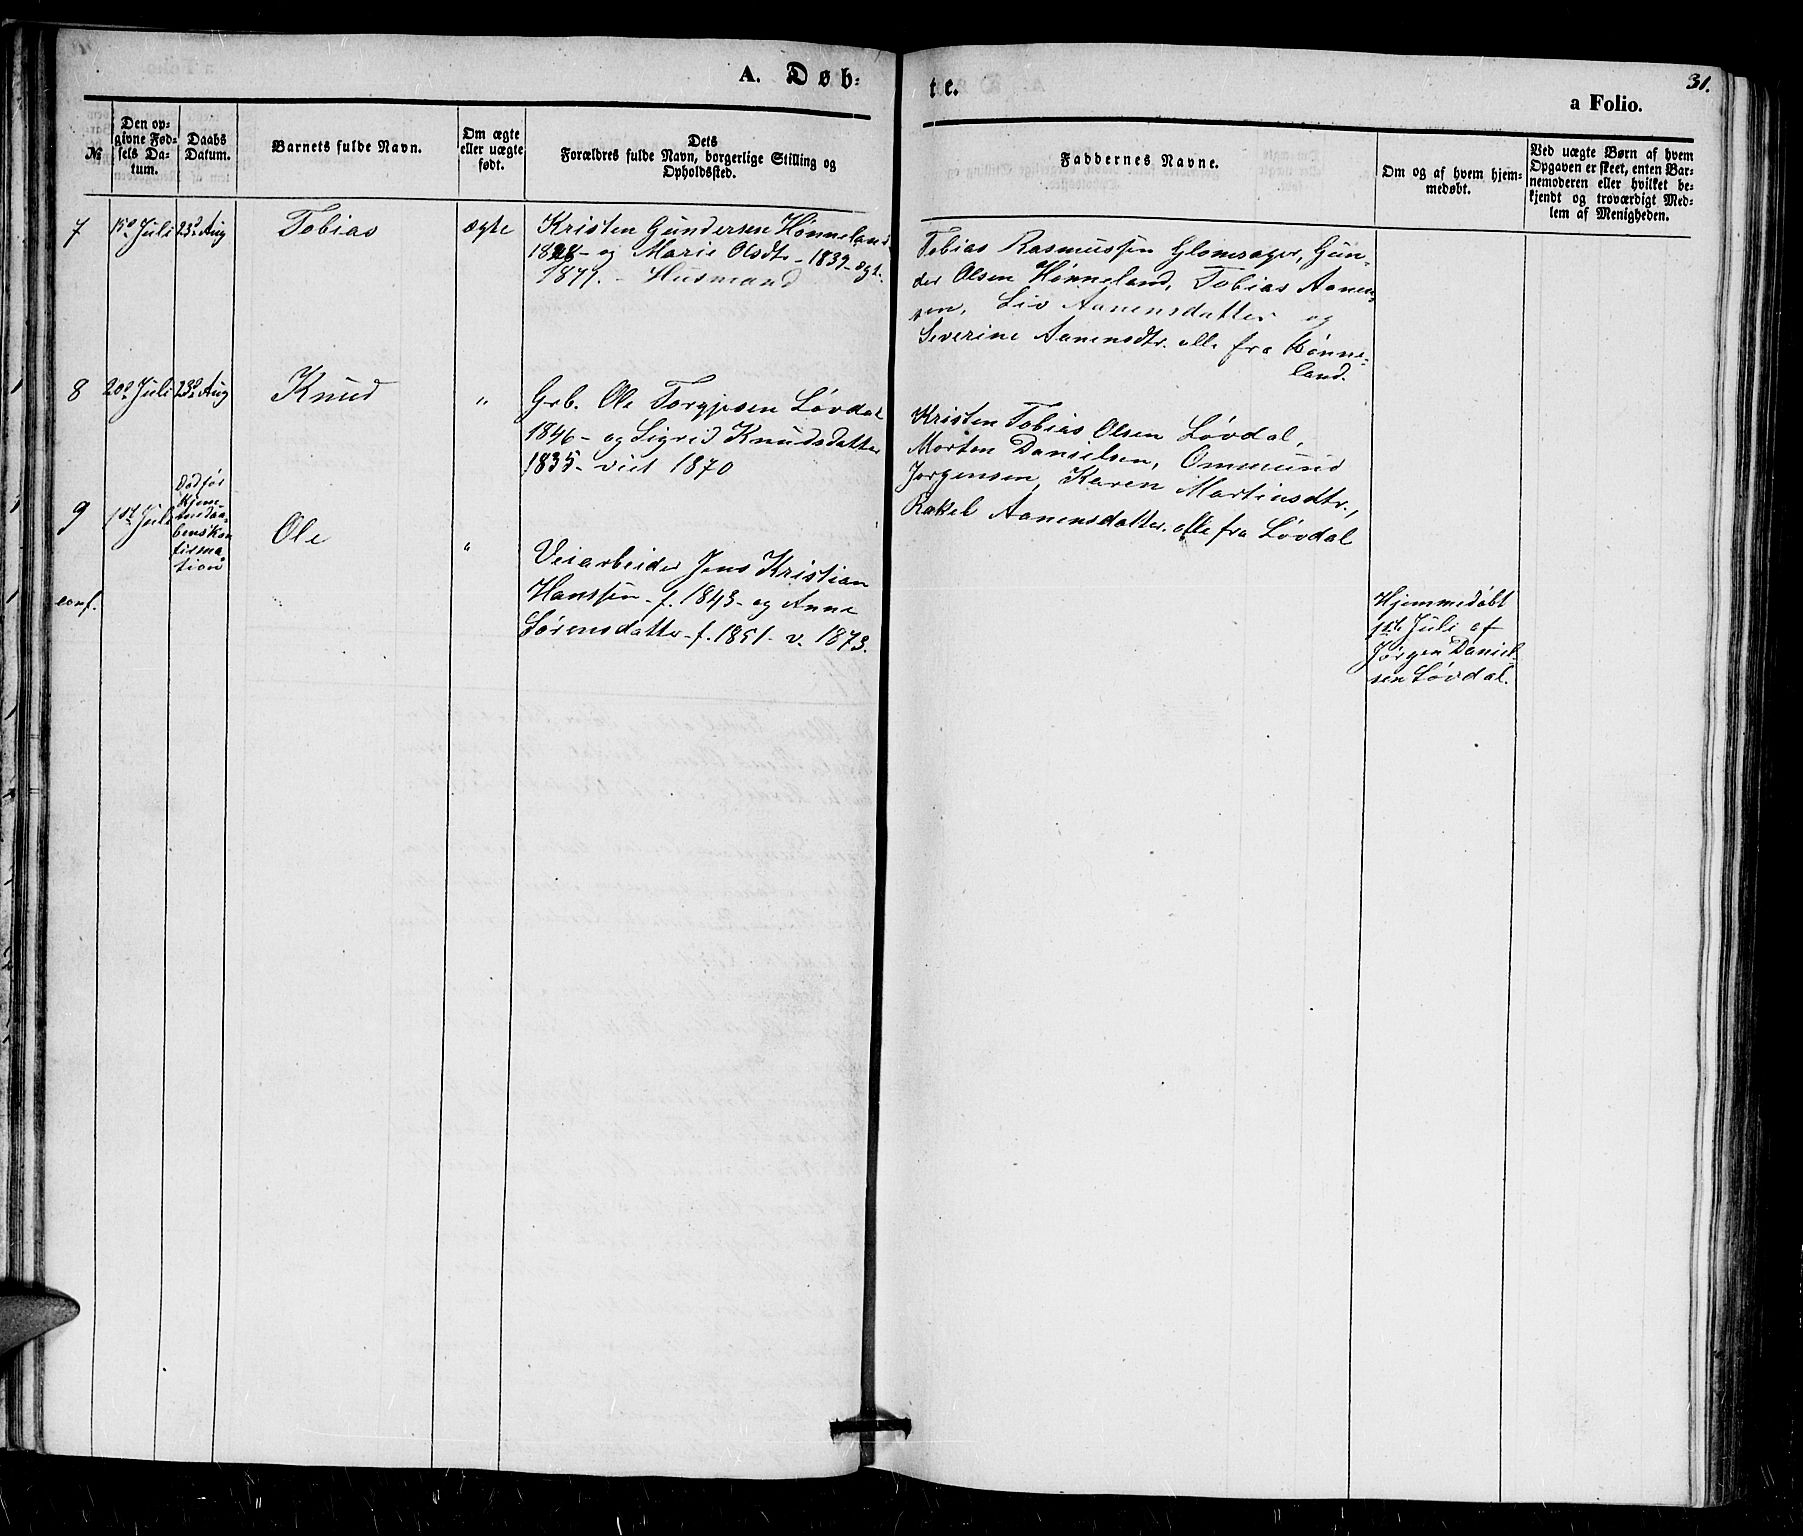 A. Døb-
te.
31.
a Folio.
№
Den op-
givne Fød-
sels Da-
tum.
Daabs
Datum.
Barnets fulde Navn.
Om ægte
eller uægte
født.
Dets
Forældres fulde Navn, borgerlige Stilling og
Opholdssted.
Faddernes Navne.
Om og af hvem hjem-
medøbt.
Ved uægte Børn af hvem
Opgaven er skeet, enten Bar-
nemoderen eller hvilket be-
kjendt og troværdigt Med-
lem af Menigheden.
7
15d Juli
23d Aug
Tobias
ægte
Kristen Gundersen Hønneland
1828 - og Marie Olsdtr - 1839 - ægt.
1871. - Husmand
Tobias Rasmussen Glomsager, Gun-
der Olsen Hønneland, Tobias Aanen-
sen, Liv Aanensdatter og
Severine Aanensdtr. alle fra Hønne-
land.
8
20d Juli
23d Aug
Knud
"
Grb. Ole Torgjusen Løvdal
1846 - og Sigrid Knudsdatter
1835 - viet 1870
Kristen Tobias Olsen Løvdal,
Morten Danielsen, Ommund
Jørgensen, Karen Martinsdtr.,
Rakel Aanensdatter. alle fra Løvdal
9
1ste Juli
Død før
Hjem-
medaa-
bens Kon-
firma-
tion
Ole
"
Veiarbeider Jens Kristian
Hanssen - f. 1843 - og Anne
Sørensdatter - f. 1851 - v. 1873.
conf.
Hjemmedøbt
1ste Juli af
Jørgen Daniel-
sen Løvdal.